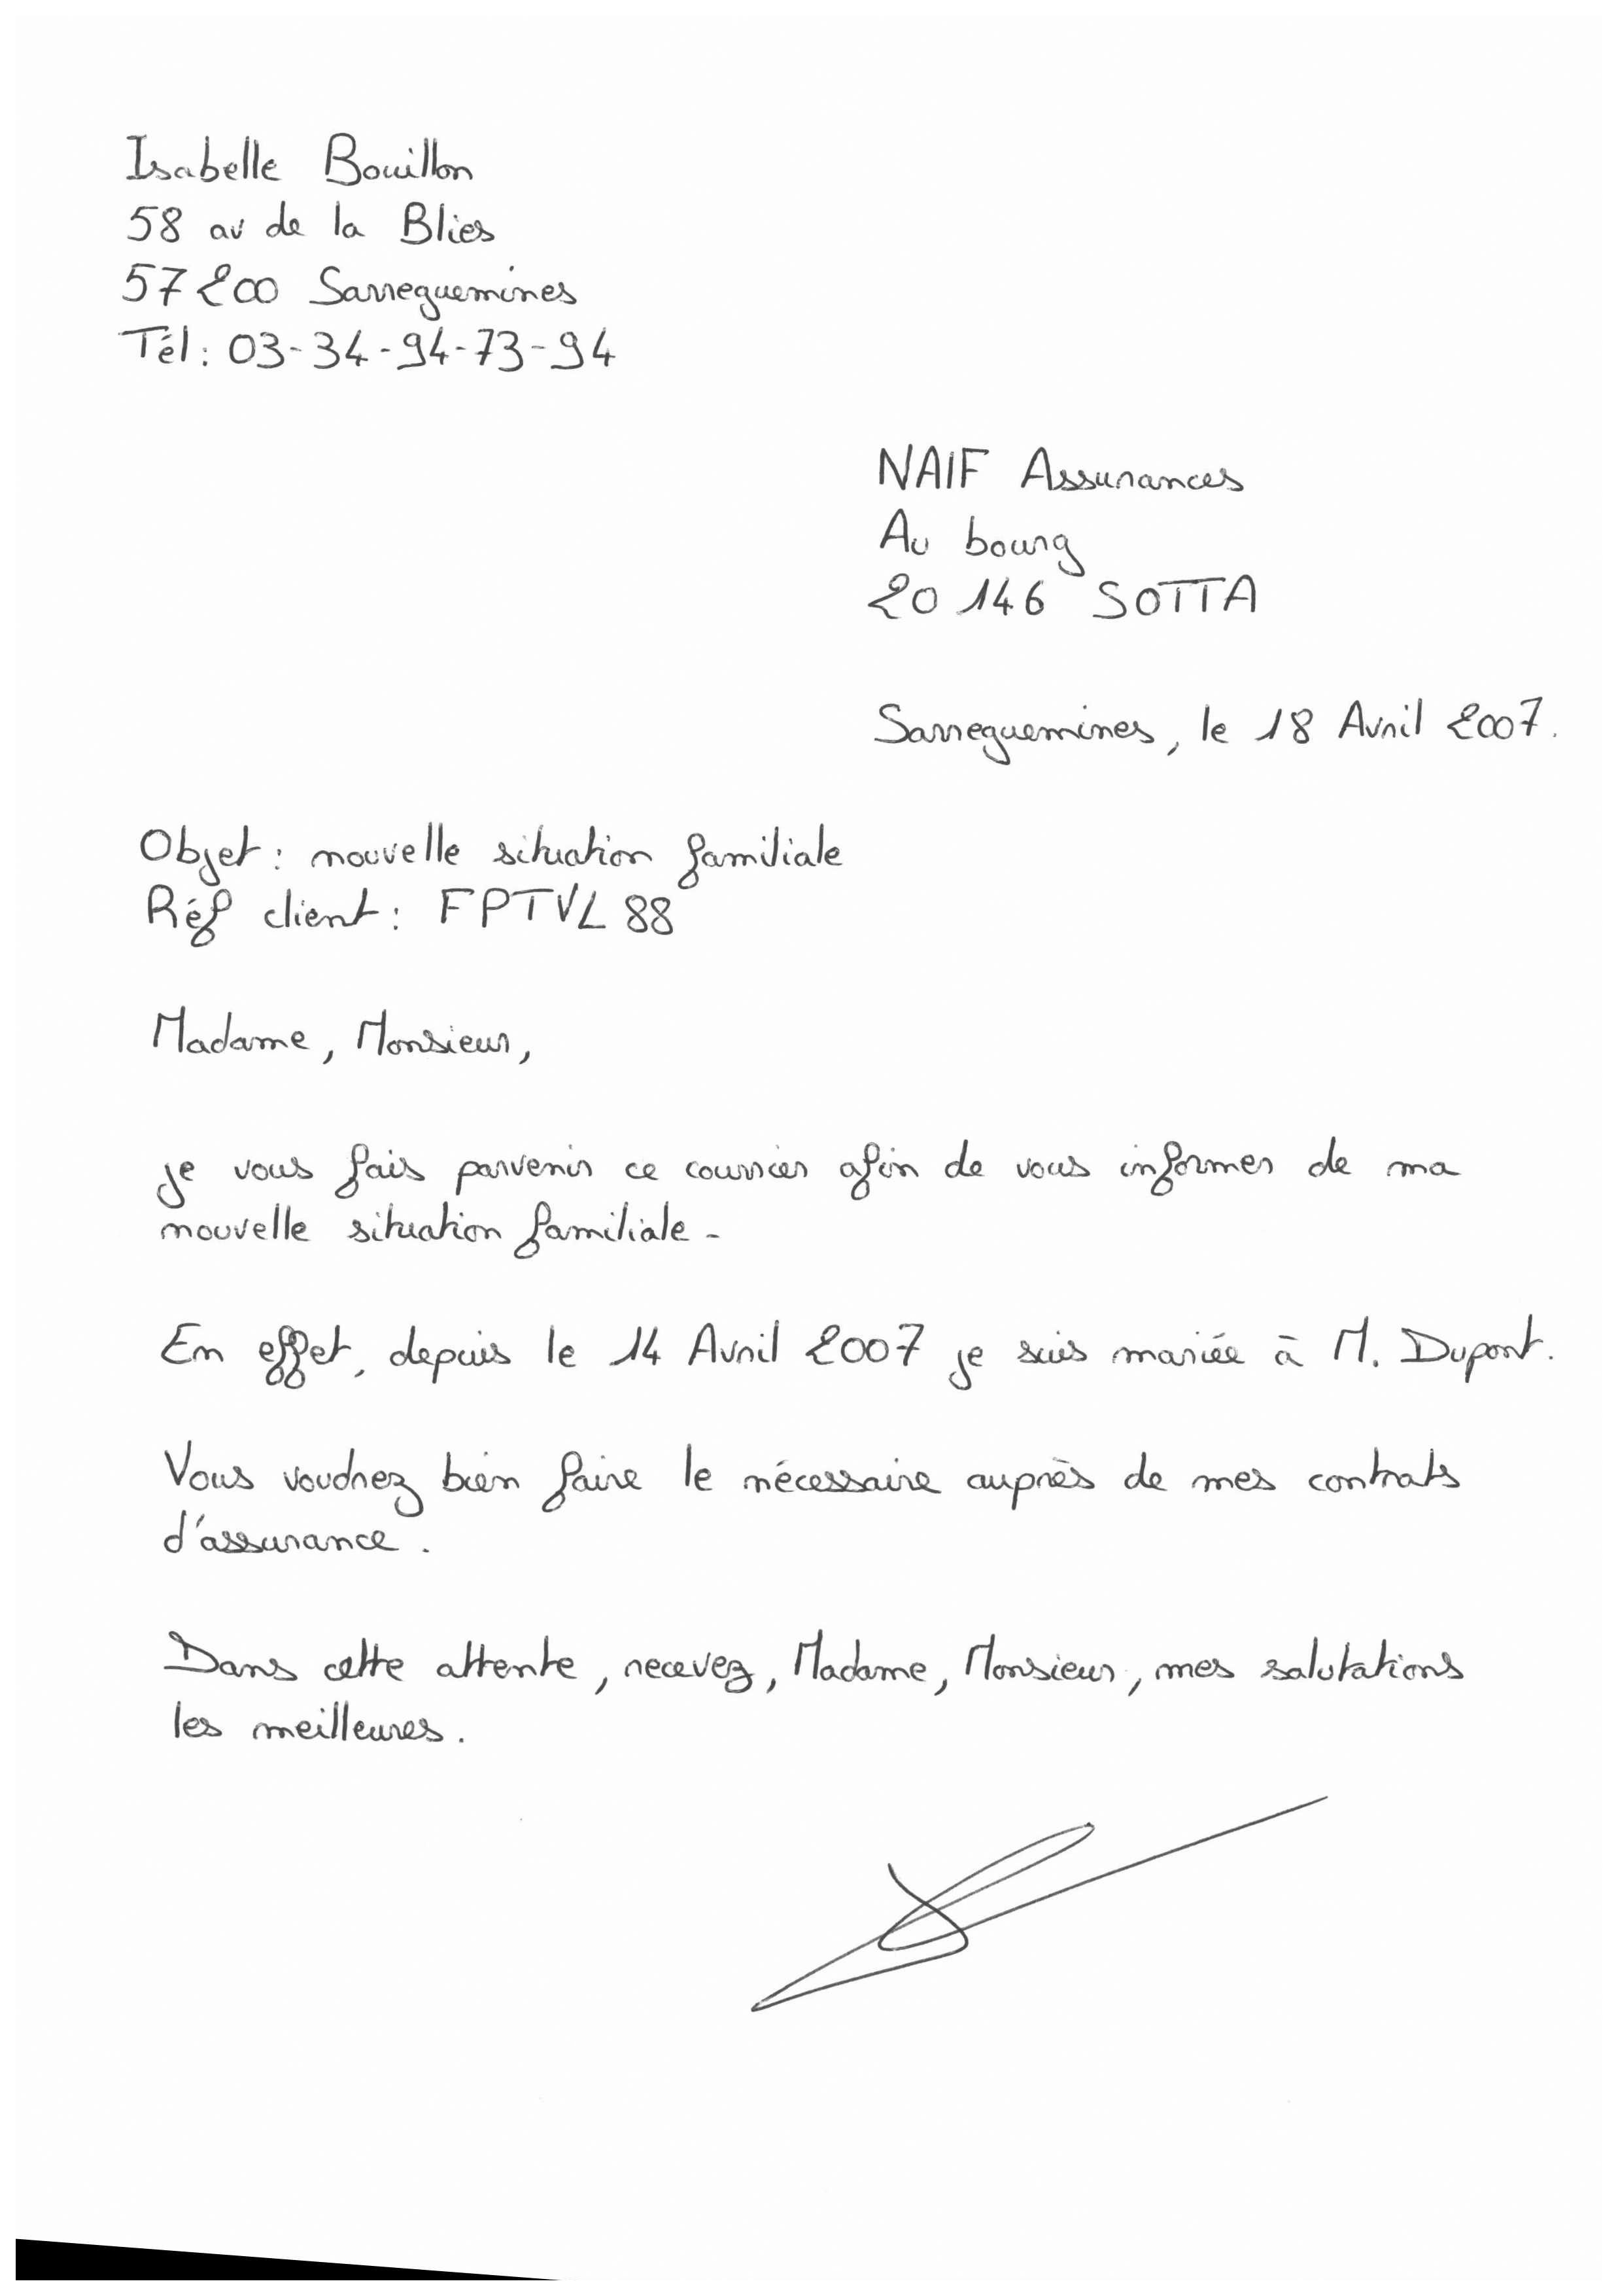 Isabelle Bouillon
58 av de la Blies
57200 Sarreguemines
Tél : 03-34-94-73-94
NAIF Assurances
Au bourg
20 146 SOTTA
Sarreguemines, le 18 Avril 2007.
Objet : nouvelle situation familiale
Réf client : FPTVL 88
Madame, Monsieur,
je vous fais parvenir ce courrier afin de vous informer de ma
nouvelle situation familiale -
En effet, depuis le 14 Avril 2007 je suis mariée à M. Dupont.
Vous voudrez bien faire le nécessaire auprès de mes contrats
d'assurance .
Dans cette attente, recevez, Madame, Monsieur, mes salutations
les meilleures .